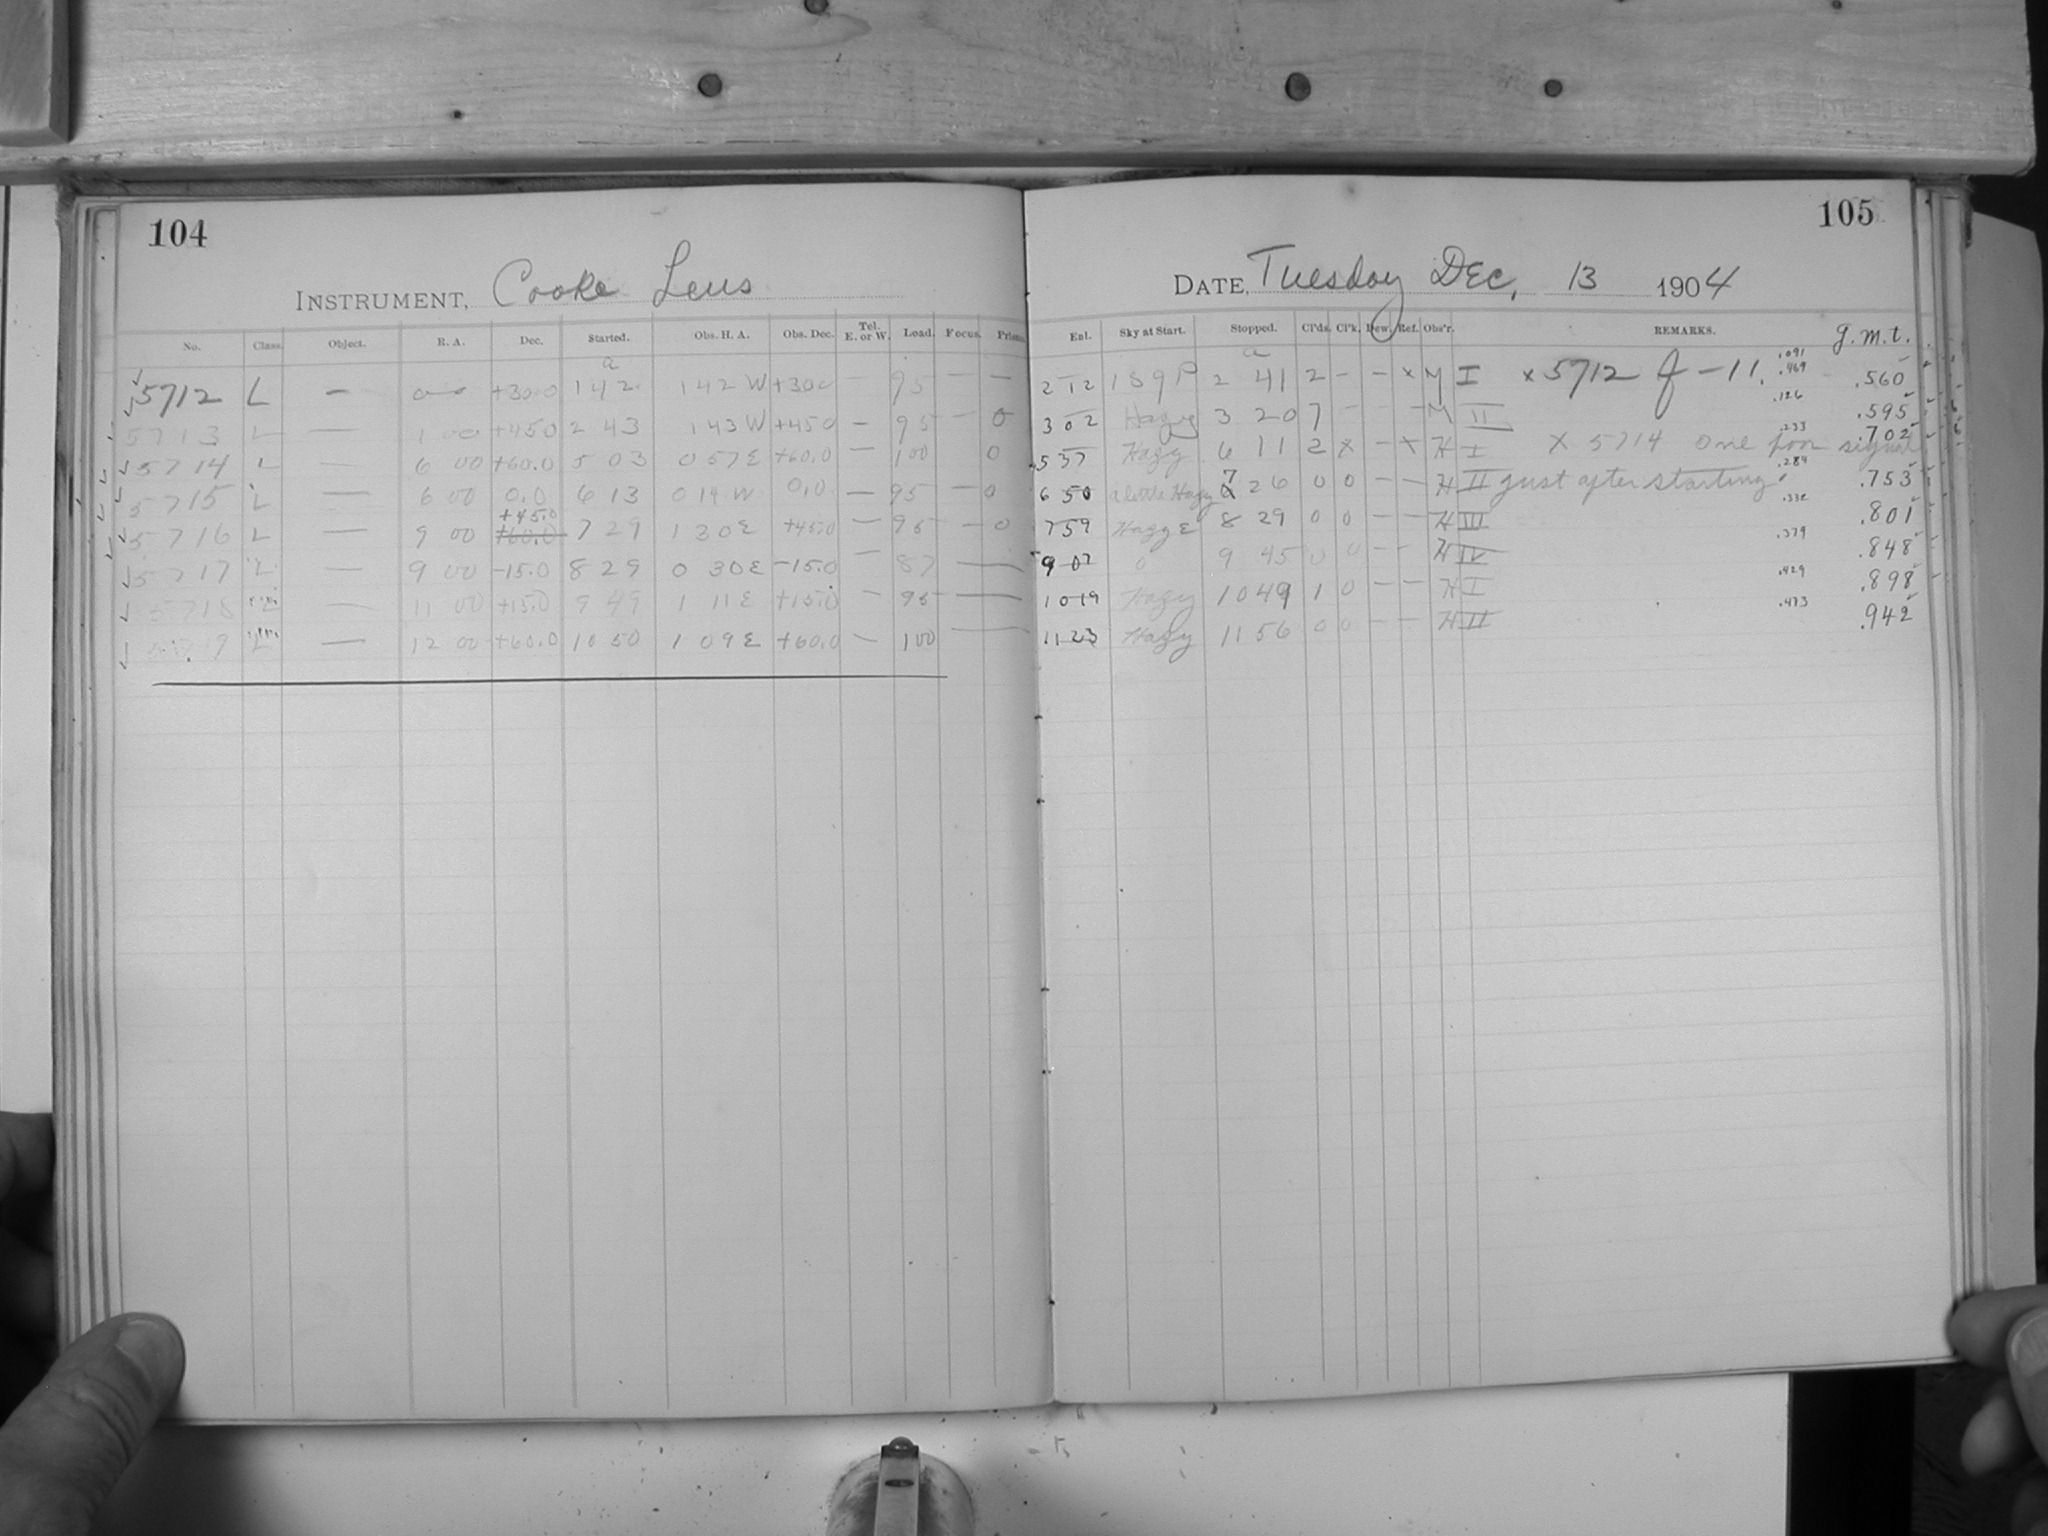 104
INSTRUMENT, Cooke Lens
No. Class. Object. R. A. Dec. Started. Obs. H. A. Obs. Dec. Tel. E. or W. Load. Focus.
a
5712 L — 0 — +30.0 1 42 1 42 W +30.0 — 95 — —
5713 L — 1 00 +45.0 2 43 1 43 W +45.0 — 95 — 0
5714 L — 6 00 +60.0 5 03 0 57 E +60.0 — 100 0
5715 L — 6 00 0.0 6 13 0 14 W 0.0 — 95 — 0
+45.0
5716 L — 9 00 +60.0 7 29 1 30 E +45.0 — 95 — 0
5717 L — 9 00 -15.0 8 29 0 30 E -15.0 — 87 —
5718 L — 11 00 +15.0 9 49 1 11 E +15.0 — 95 —
5719 L — 12 00 +60.0 10 50 1 09 E +60.0 — 100 —
105
DATE, Tuesday DEc, 13 1904
Enl. Sky at Start. Stopped. Cl'ds. Cl'k. Dew. Ref. Obs'r. REMARKS. g.m.t.
a
2 12 2 41 2 — — x M I x 5712 — 11. .091 .469 .560
3 02 Hazy 3 20 7 — — — M II .126 .595
5 37 Hazy 6 11 2 x — x H I x 5714 one poor signal .233 .702
6 50 a little Hazy 7 26 0 0 — — H II just after starting .284 .753
7 59 Hazy E 8 29 0 0 — — H III .332 .801
9 07 0 9 45 0 0 — — H IV .379 .848
10 19 Hazy 10 49 1 0 — — H I .429 .898
11 23 Hazy 11 56 0 0 — — H II .473 .942